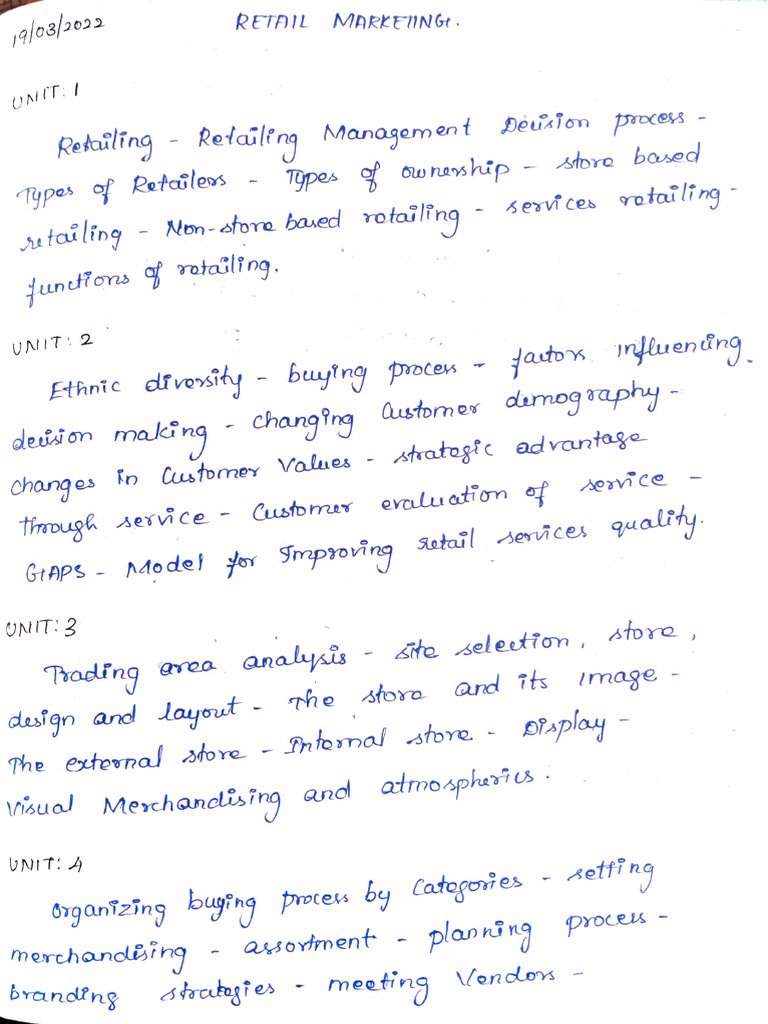 19/03/2022
RETAIL MARKETING.
UNIT: 1
Retailing - Retailing Management Decision process -
Types of Retailers - Types of ownership - store based
retailing - Non-store based retailing - services retailing -
functions of retailing.
UNIT: 2
Ethnic diversity - buying process - factors influencing
decision making - changing Customer demography -
changes in Customer Values - strategic advantage
through service - Customer evaluation of service -
GAPS - Model for Improving retail services quality.
UNIT: 3
Trading area analysis - site selection, store,
design and layout - The store and its image -
The external store - Internal store - Display -
Visual Merchandising and atmospherics.
UNIT: 4
Organizing buying process by Categories - setting
merchandising - assortment - planning process -
branding strategies - meeting Vendors -